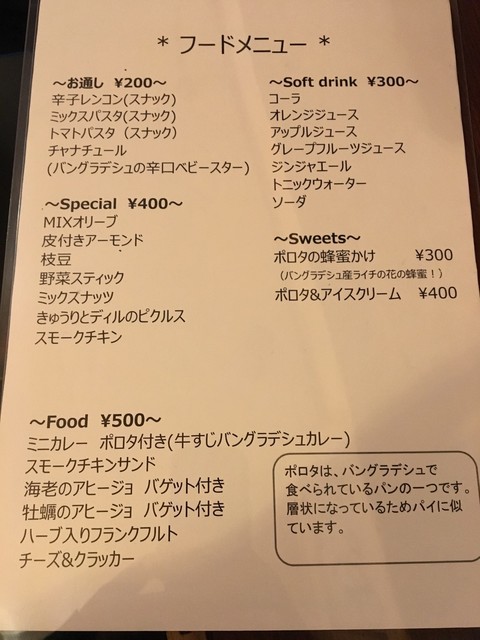 * フードメニュー *
～お通し ¥200～
辛子レンコン(スナック)
ミックスパスタ(スナック)
トマトパスタ（スナック）
チャナチュール
(バングラデシュの辛口ベビースター)
～Special ¥400～
MIXオリーブ
皮付きアーモンド
枝豆
野菜スティック
ミックスナッツ
きゅうりとディルのピクルス
スモークチキン
～Soft drink ¥300～
コーラ
オレンジジュース
アップルジュース
グレープフルーツジュース
ジンジャエール
トニックウォーター
ソーダ
～Sweets～
ポロタの蜂蜜かけ ¥300
（バングラデシュ産ライチの花の蜂蜜！）
ポロタ&アイスクリーム ¥400
～Food ¥500～
ミニカレー ポロタ付き(牛すじバングラデシュカレー)
スモークチキンサンド
海老のアヒージョ バゲット付き
牡蠣のアヒージョ バゲット付き
ハーブ入りフランクフルト
チーズ&クラッカー
ポロタは、バングラデシュで
食べられているパンの一つです。
層状になっているためパイに似
ています。